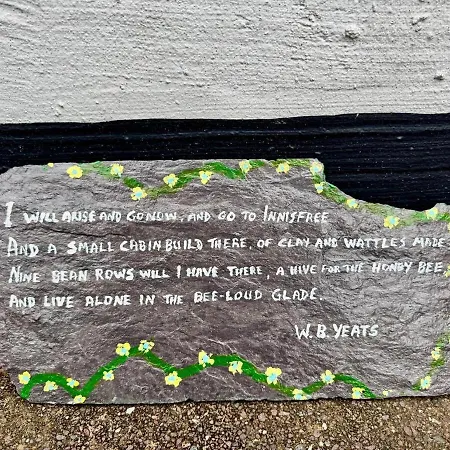 I WILL ARISE AND GO NOW, AND GO TO INNISFREE
AND A SMALL CABIN BUILD THERE, OF CLAY AND WATTLES MADE
NINE BEAN ROWS WILL I HAVE THERE, A HIVE FOR THE HONEY BEE,
AND LIVE ALONE IN THE BEE-LOUD GLADE.
W.B. YEATS